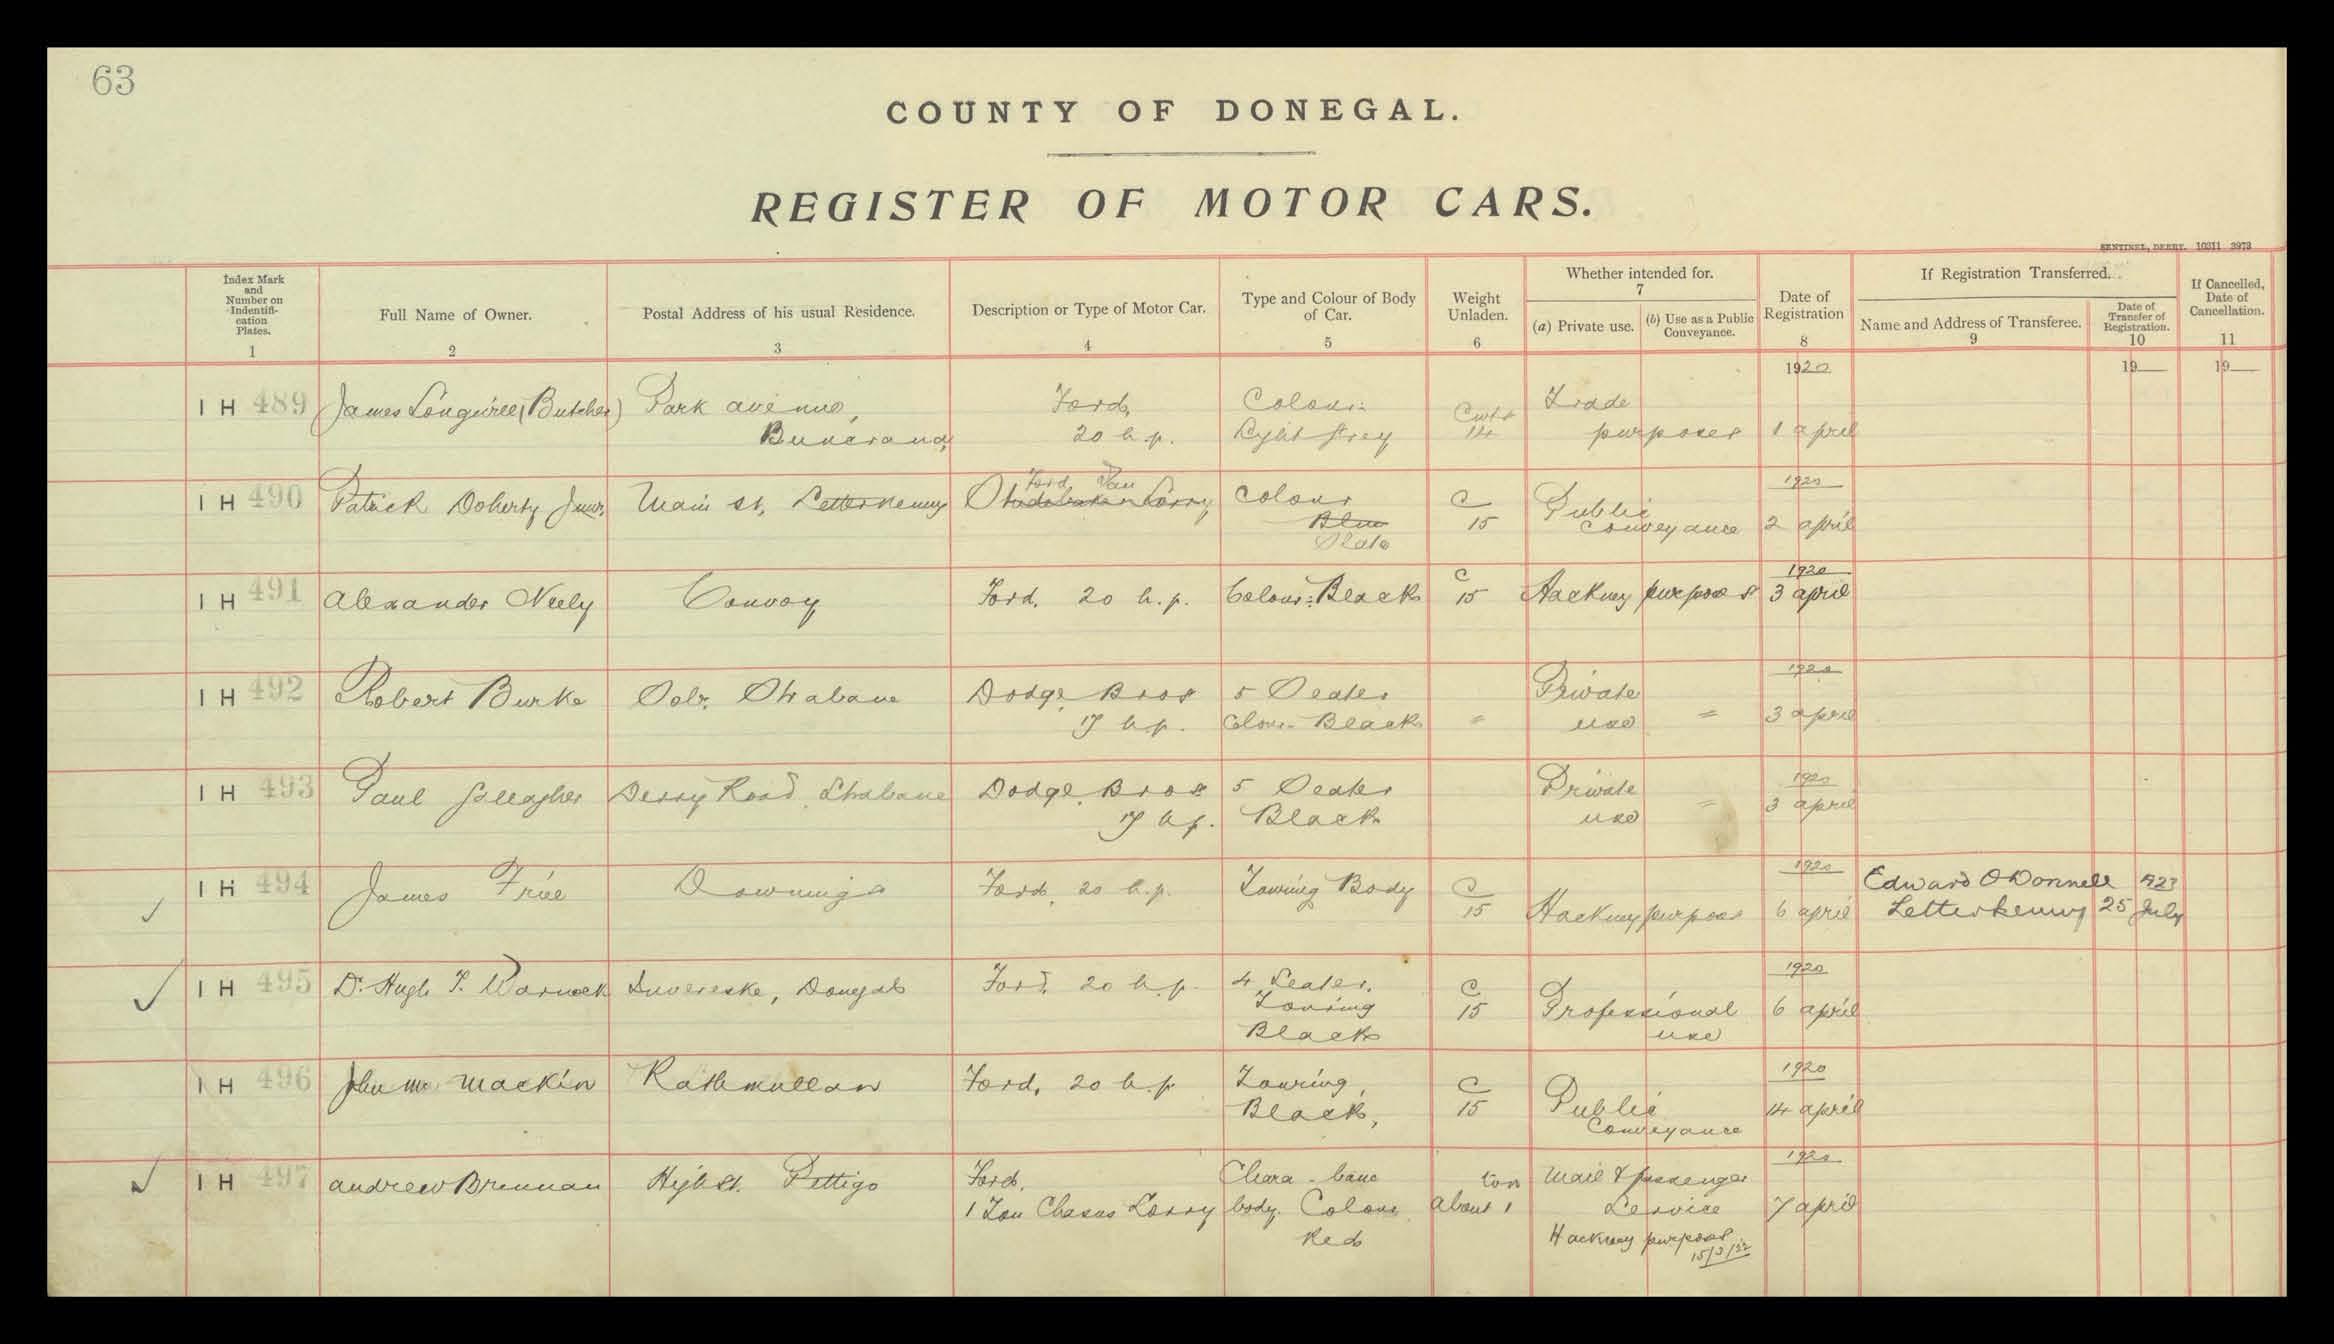 63
COUNTY OF DONEGAL.
REGISTER OF MOTOR CARS.
SENTINEL, DERRY. 10311 3973
Index Mark and Number on Indentifi-cation Plates. 1
Full Name of Owner. 2
Postal Address of his usual Residence. 3
Description or Type of Motor Car. 4
Type and Colour of Body of Car. 5
Weight Unladen. 6
Whether intended for. 7
(a) Private use.
(b) Use as a Public Conveyance.
Date of Registration 8
If Registration Transferred.
Name and Address of Transferee. 9
Date of Transfer of Registration. 10
If Cancelled, Date of Cancellation. 11
1920 19 19
I H 489 James (Butcher) Park avenue, Ford, Colour: Cwts Trade
Buncrana, 20 h.p. Light Grey 14 purposes 1 april
1920
Ford Van
I H 490 Patrick Doherty Junr. Main St, Letterkenny Studebaker Lorry Colour C Public
Blue 15 Conveyance 2 april
Slate
1920
I H 491 Alexander Neely Convoy Ford, 20 h.p. Colour: Black C 15 Hackney purposes 3 april
1920
I H 492 Robert Burke Solr. Strabane Dodge Bros 5 Seater Private
17 h.p. Colour Black " use " 3 april
1920
I H 493 Paul Gallagher Derry Road, Strabane Dodge Bros 5 Seater Private
17 h.p. Black use " 3 april
1920
I H 494 James Friel Downings Ford, 20 h.p. Touring Body C Edward O'Donnell 1923
15 Hackney purposes 6 april Letterkenny 25 July
1920
I H 495 Dr. Hugh T. Warnock Donegal Ford, 20 h.p. 4 Seater, C
Touring 15 Professional 6 april
Black use
1920
I H 496 John Mackin Rathmullan Ford, 20 h.p. Touring, C
Black, 15 Public 14 april
Conveyance
1920
I H 497 Andrew Brennan High St. Pettigo Ford, Chara-banc ton Mail & passenger
1 Ton Chasis Lorry body. Colour About 1 Service 7 april
Red Hackney purposes
15/3/22